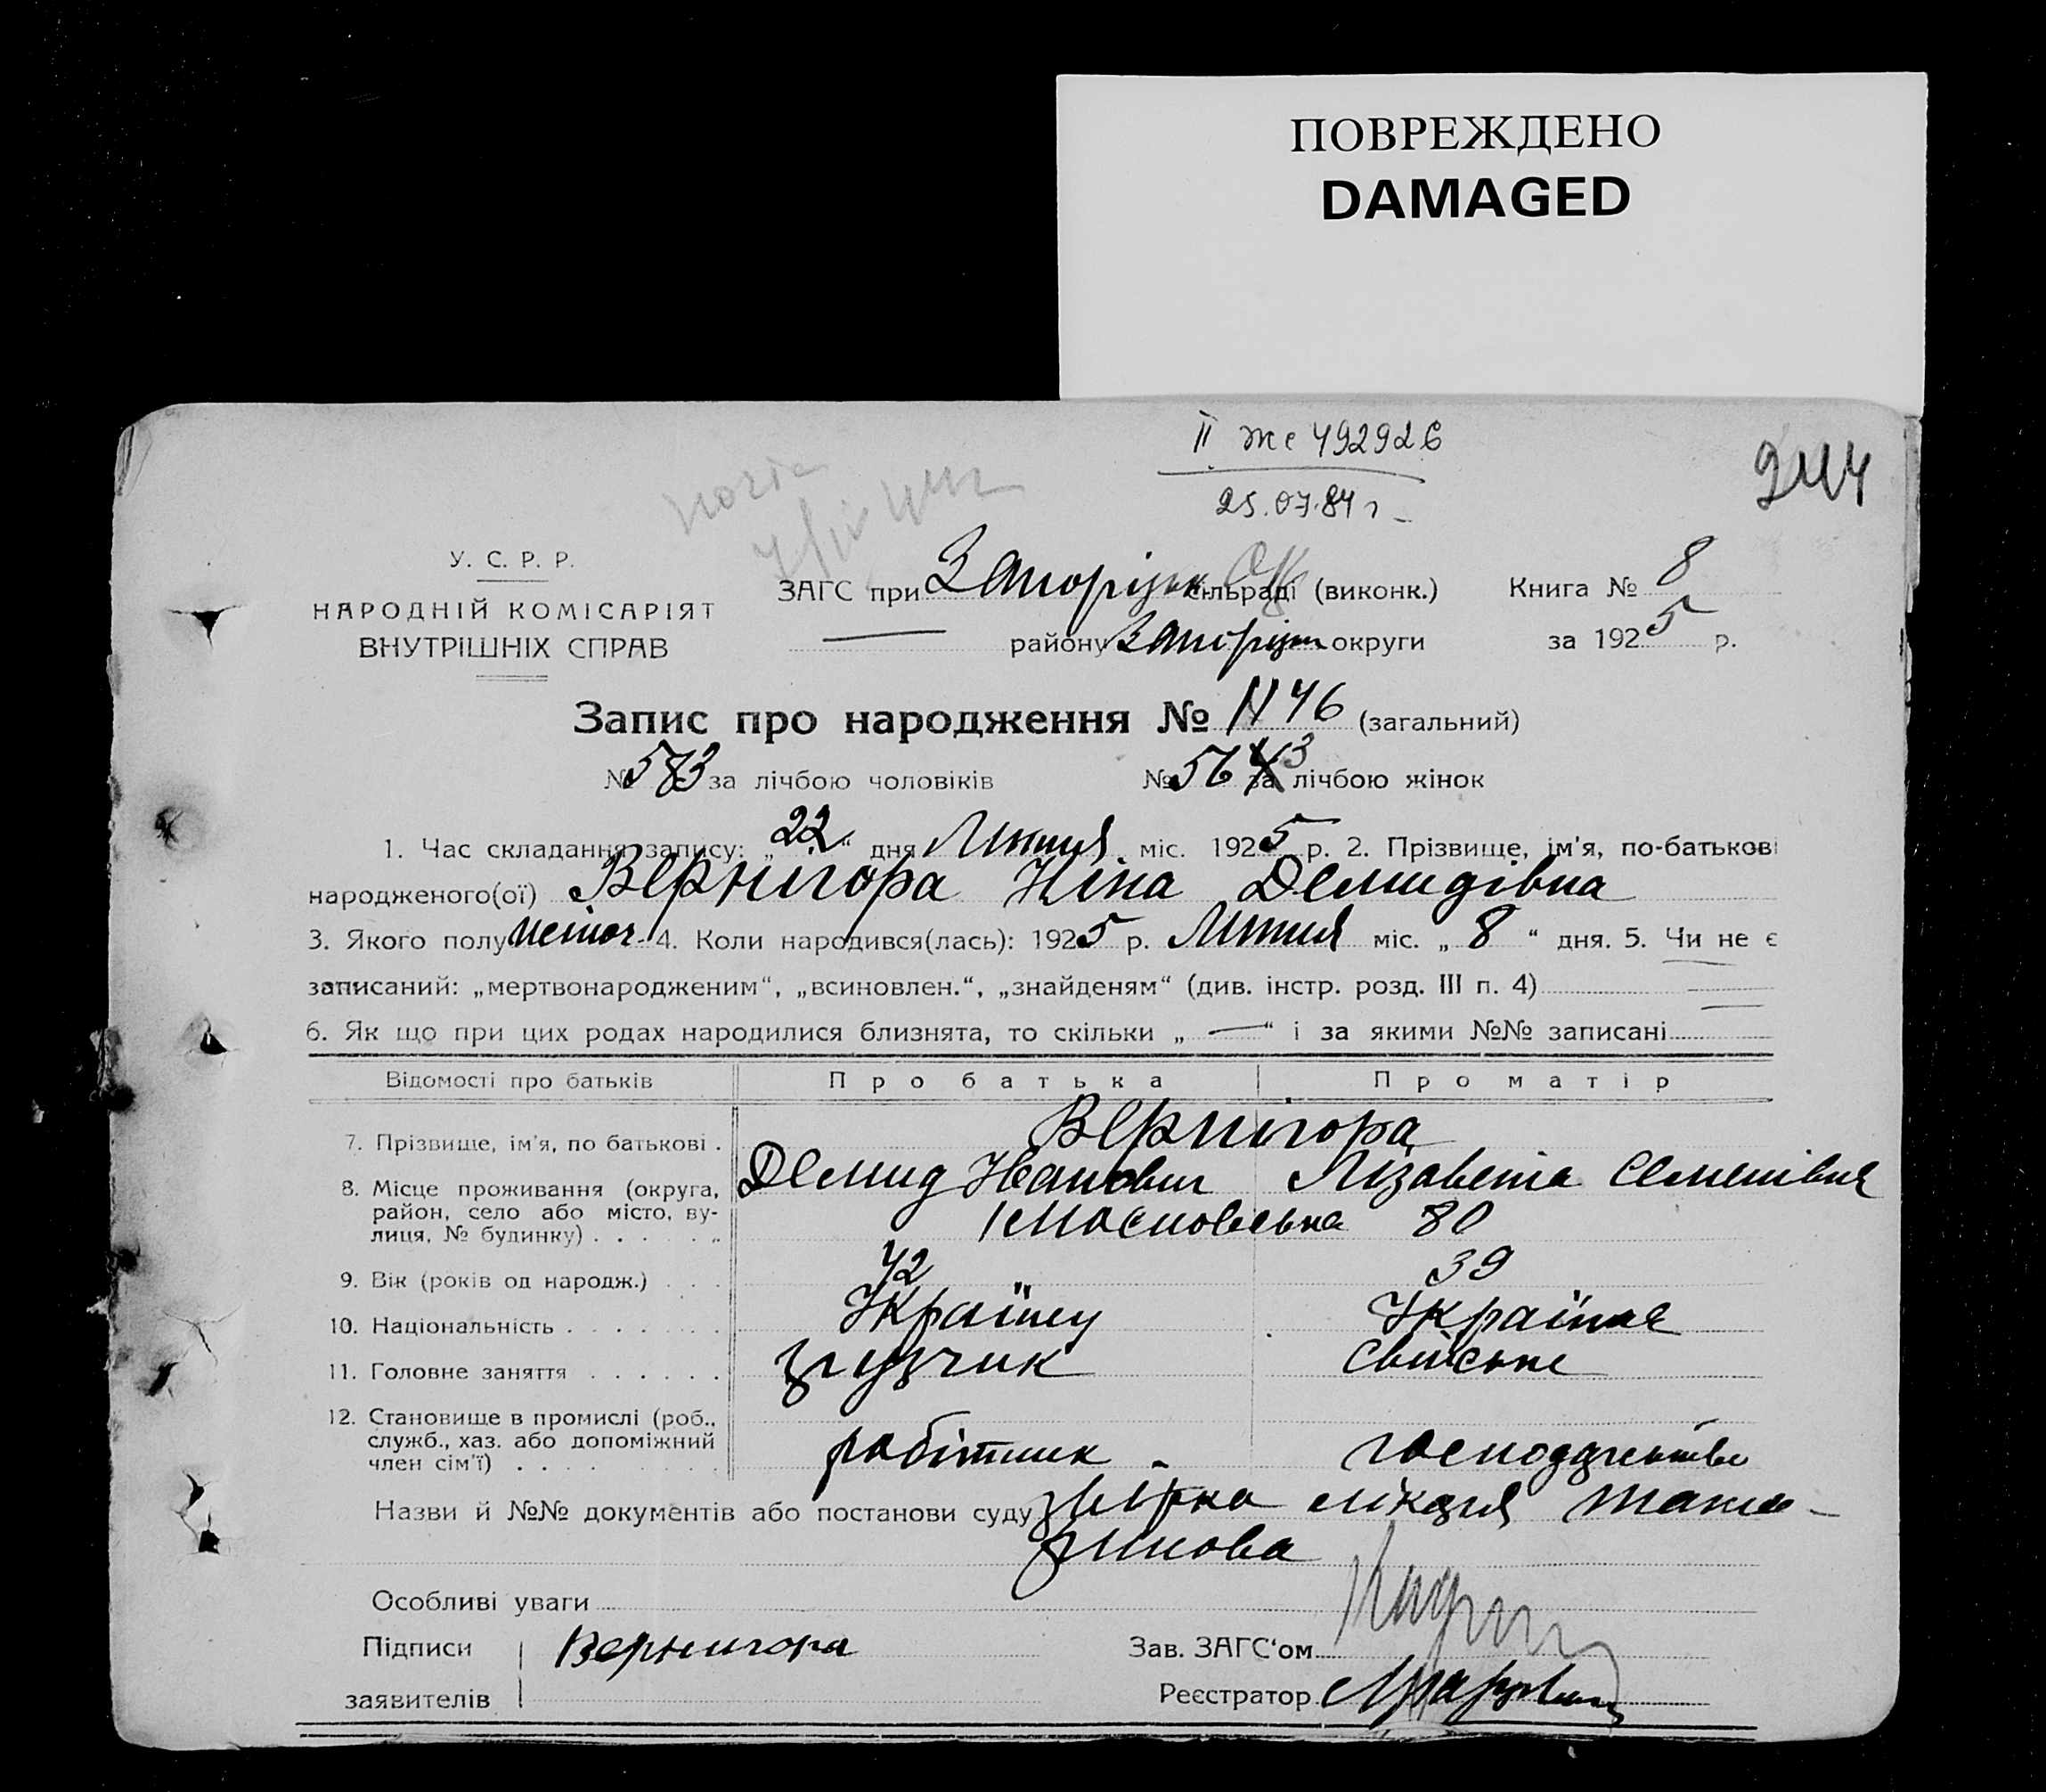 ПОВРЕЖДЕНО
DAMAGED
ІІ же 492926
25.07.84 г
244
У. С. Р. Р.
НАРОДНІЙ КОМІСАРІЯТ
ВНУТРІШНІХ СПРАВ
ЗАГС при Запорізьк. сільраді (виконк.) Книга № 8
району Запорізьк округи за 1925 р.
Запис про народження № 1146 (загальний)
№ 583 за лічбою чоловіків № 563 за лічбою жінок
1. Час складання запису: „22“ дня Липня міс. 1925 р. 2. Прізвище, ім'я, по-батькові
народженого(ої) Вернигора Ніна Демидівна
3. Якого полу жіноч. 4. Коли народився(лась): 1925 р. Липня міс. „8“ дня. 5. Чи не є
записаний: „мертвонародженим“, „всиновлен.“, „знайденям“ (див. інстр. розд. III п. 4)
6. Як що при цих родах народилися близнята, то скільки „—“ і за якими №№ записані
Відомості про батьків Про батька Про матір
7. Прізвище, ім'я, по батькові . Вернигора
Демид Іванович Лізавета Семенівна
8. Місце проживання (округа,
район, село або місто, ву-
лиця, № будинку) 80
9. Вік (років од народж.) 42 39
10. Національність Українц Українка
11. Головне заняття грузчик свійське
12. Становище в промислі (роб.,
служб., хаз. або допоміжний
член сім'ї) робітник господарство
Назви й №№ документів або постанови суду
Особливі уваги
Підписи Вернигора Зав. ЗАГС'ом
заявителів Реєстратор